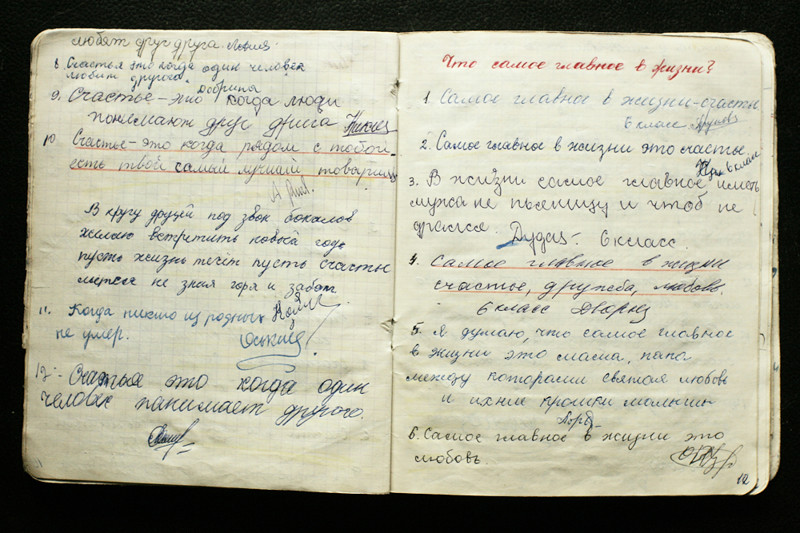 любят друг друга.
8 Счастья это когда один человек
любит другого.
9. Счастье – это когда люди
понимают друг друга
10 Счастье – это когда рядом с тобой
есть твой самый лучший товарищ
В кругу друзей под звон бокалов
желаю встретить новый годъ
пусть жизнь течёт пусть счастье
не зная горя и забот
11. Когда никто из родных
не умер.
12. - Счастье это когда один
человек панимает другого.
Что самое главное в жизни?
1. Самое главное в жизни – счастье
6 класс
2. Самое главное в жизни это счастье.
6 класс
3. В жизни самое главное иметь
мужа не пьяницу и чтоб не
Дудаς - 6 класс.
4. Самое главное в жизни
счастье, дружба, любовь.
6 класс Дворну
5. Я думаю, что самое главное
в жизни это мама, папа
между которыми святая любовь
и ихние крошки малыши
6. Самое главное в жизни это
любовь.
12